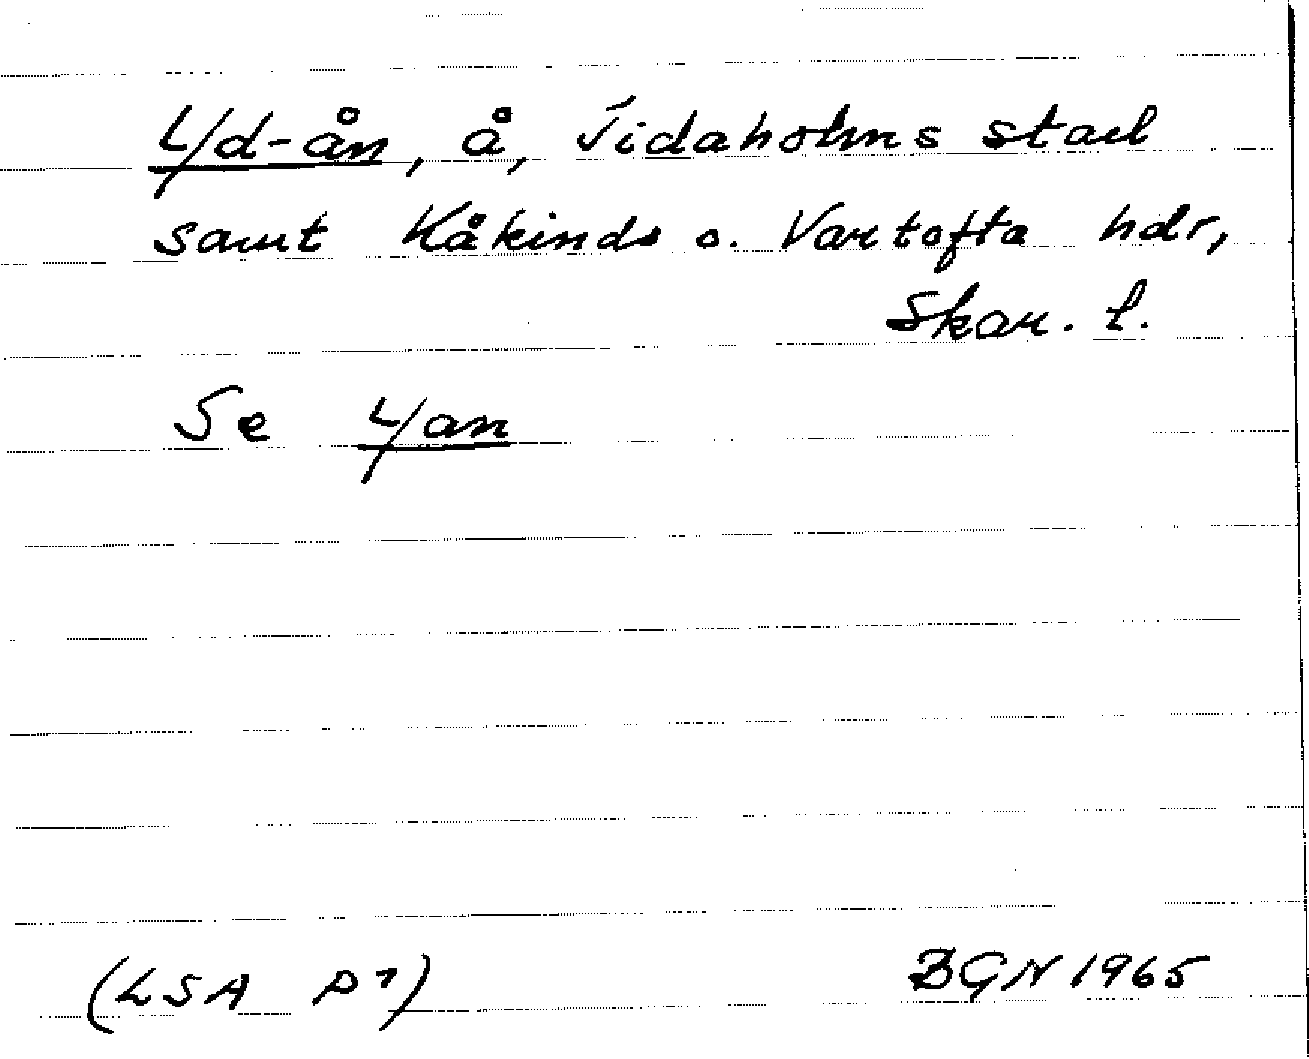 Yd-ån, å, Tidaholms stad
samt Kåkinds o. Vartofta hdr,
Skar. l.
Se Yan
(LSA P7)
BGN 1965